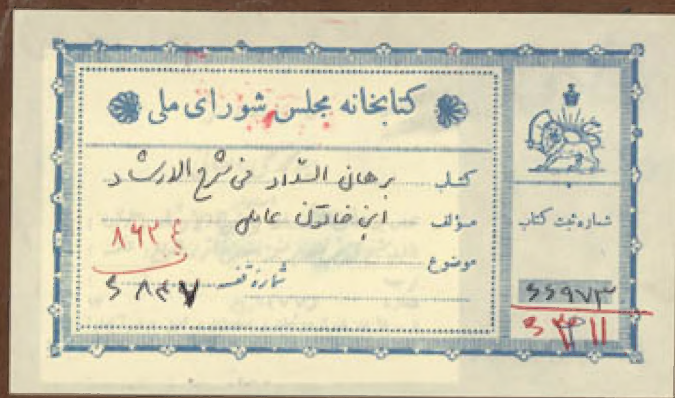 کتابخانه مجلس شورای ملی
کتاب برهان السداد فی شرح الارشاد
مؤلف ابن خاتون عاملی
موضوع
شماره قفسه
۸۶۲۴
۶۸۳۷
شماره ثبت کتاب
۶۶۹۷۳
۶۳۱۱